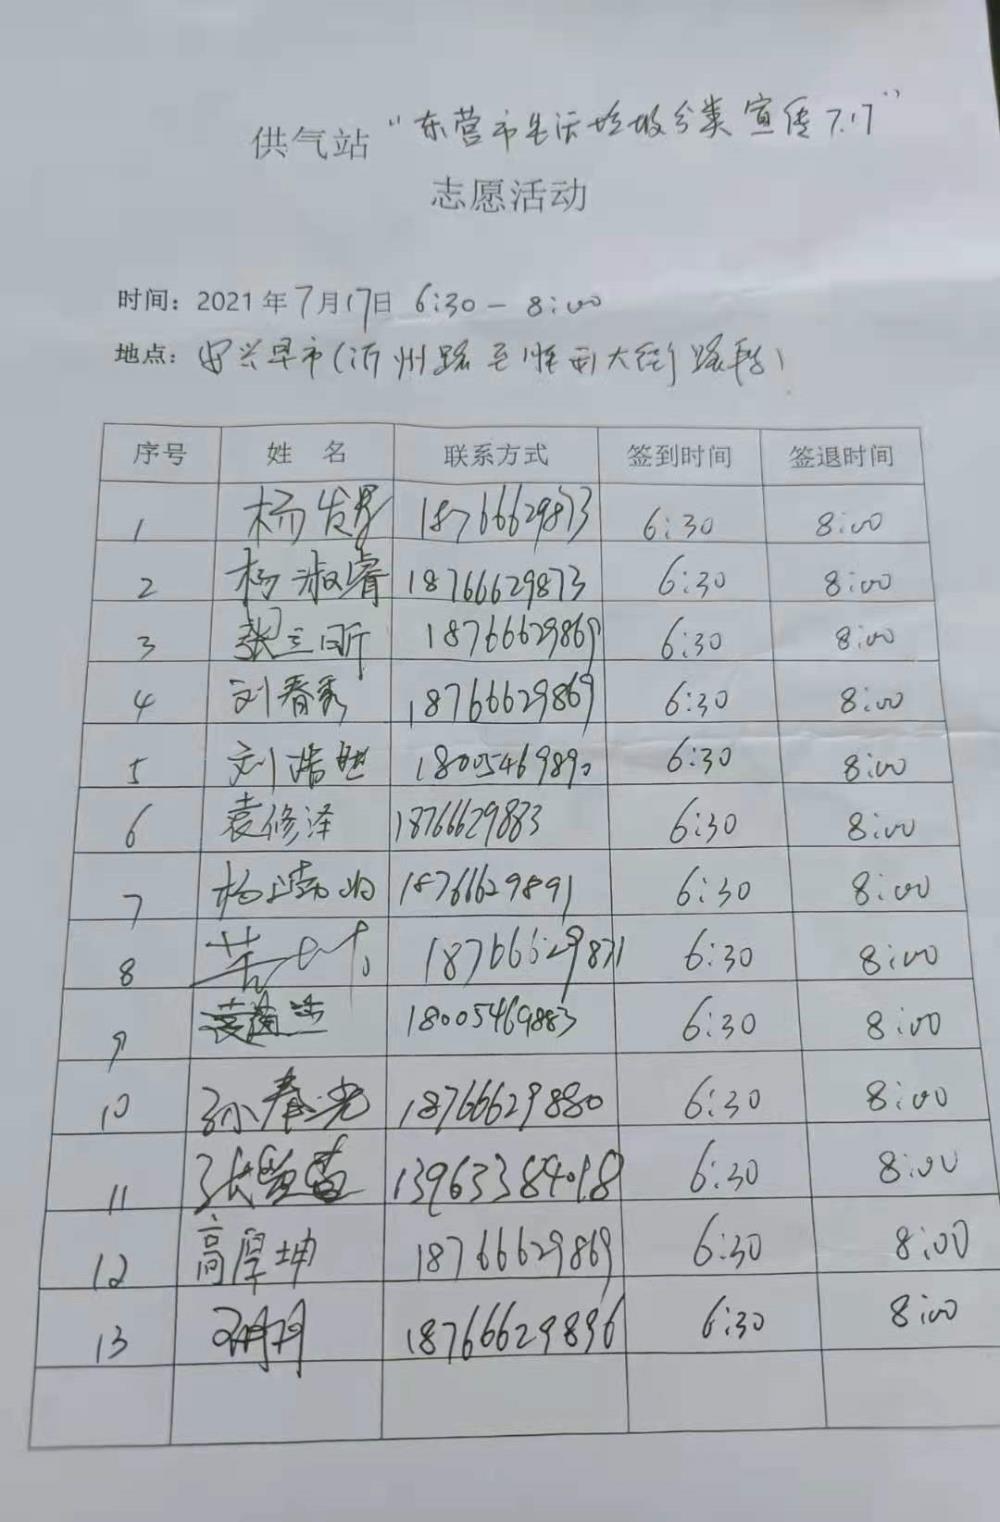 供气站"东营市生活垃圾分类宣传7.17"
志愿活动
时间：2021年7月17日 6:30-8:00
地点：安兴早市(沂州路至淮西大街路段)
序号 姓 名 联系方式 签到时间 签退时间
1 杨 18766629873 6:30 8:00
2 杨淑睿 18766629873 6:30 8:00
3 张立昕 18766629869 6:30 8:00
4 刘春秀 18766629869 6:30 8:00
5 刘浩然 18005469890 6:30 8:00
6 袁修泽 18766629883 6:30 8:00
7 杨 18766629891 6:30 8:00
8 18766629871 6:30 8:00
9 18005469883 6:30 8:00
10 孙春光 18766629880 6:30 8:00
11 张 13963384018 6:30 8:00
12 高厚坤 18766629869 6:30 8:00
13 18766629896 6:30 8:00